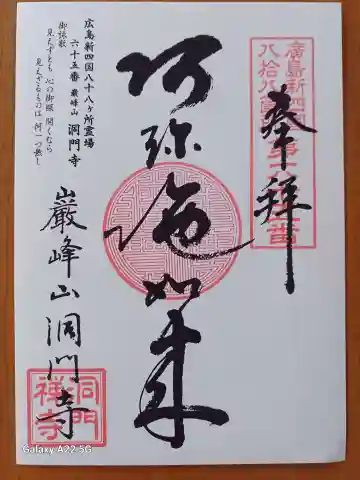 奉拝
廣島新四国
八拾八ヶ所
第六十五番
阿弥陀如来
広島新四国八十八ヶ所霊場
六十五番 巌峰山 洞門寺
御詠歌
見えずとも 心の御眼 開くむら
見えざるものは 何一つ無し
巌峰山洞門寺
洞門
禅寺
Galaxy A22 5G